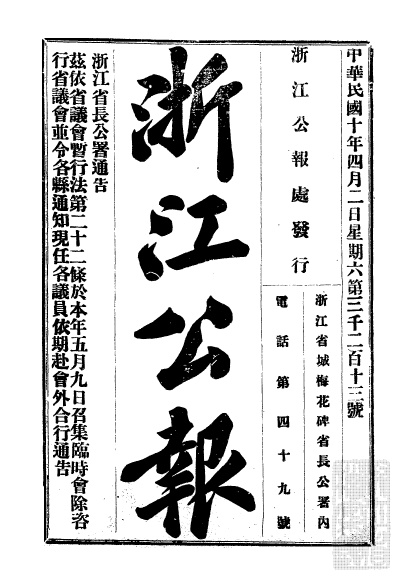 中華民國十年四月二日星期六第三千二百十三號
浙江公報處發行
浙江省城梅花碑省長公署內
電話第四十九號
浙江公報
浙江省長公署通告
茲依省議會暫行法第二十二條於本年五月九日召集臨時會除咨
行省議會並令各縣通知現任各議員依期赴會外合行通告